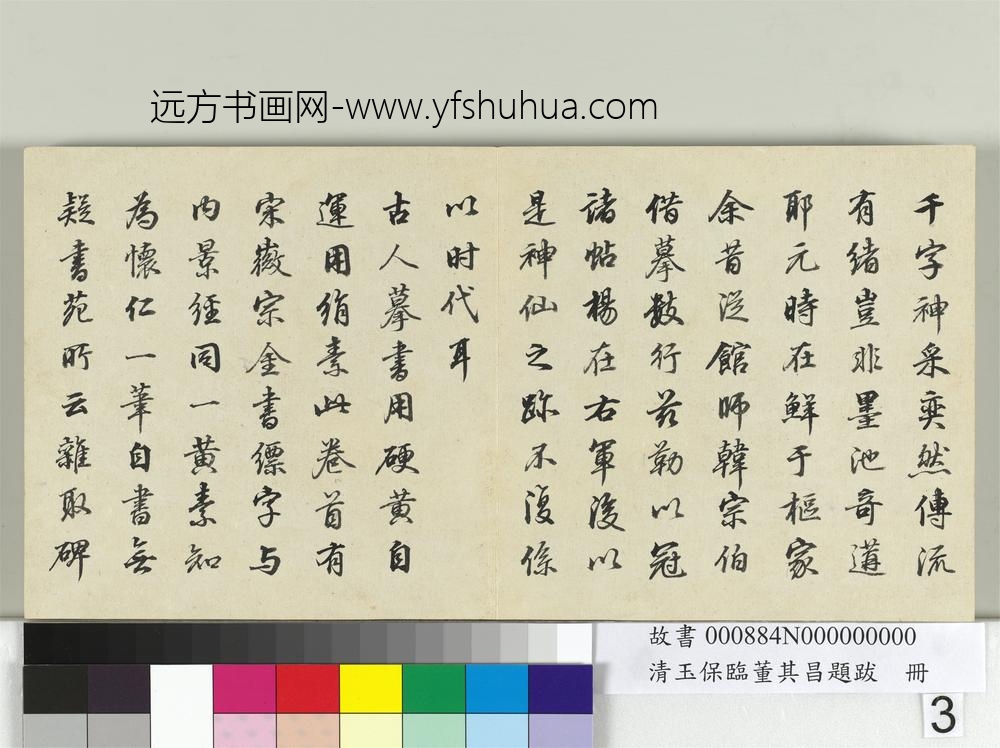 远方书画网-www.yfshuhua.com
千字神采奕然傳流
有緒豈非墨池奇遘
耶元時在鮮于樞家
余昔從館師韓宗伯
借摹數行茲勒以冠
諸帖楊在右軍後以
是神仙之跡不復係
以时代耳
古人摹書用硬黃自
運用絹素此卷首有
宋徽宗金書縹字与
内景經同一黃素知
為懷仁一筆自書無
疑書苑所云雜取碑
故書 000884N000000000
清玉保臨董其昌題跋 冊
3